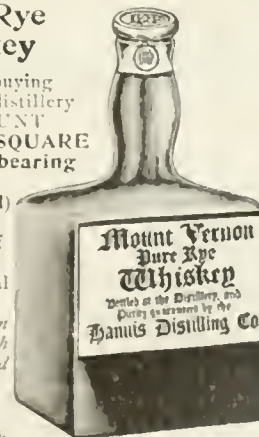 Rye
key
buying
distillery
UNT
SQUARE
bearing
Mount Vernon
Pure Rye
Whiskey
Bottled at the Distillery, and
Purity guaranteed by the
Hannis Distilling Co